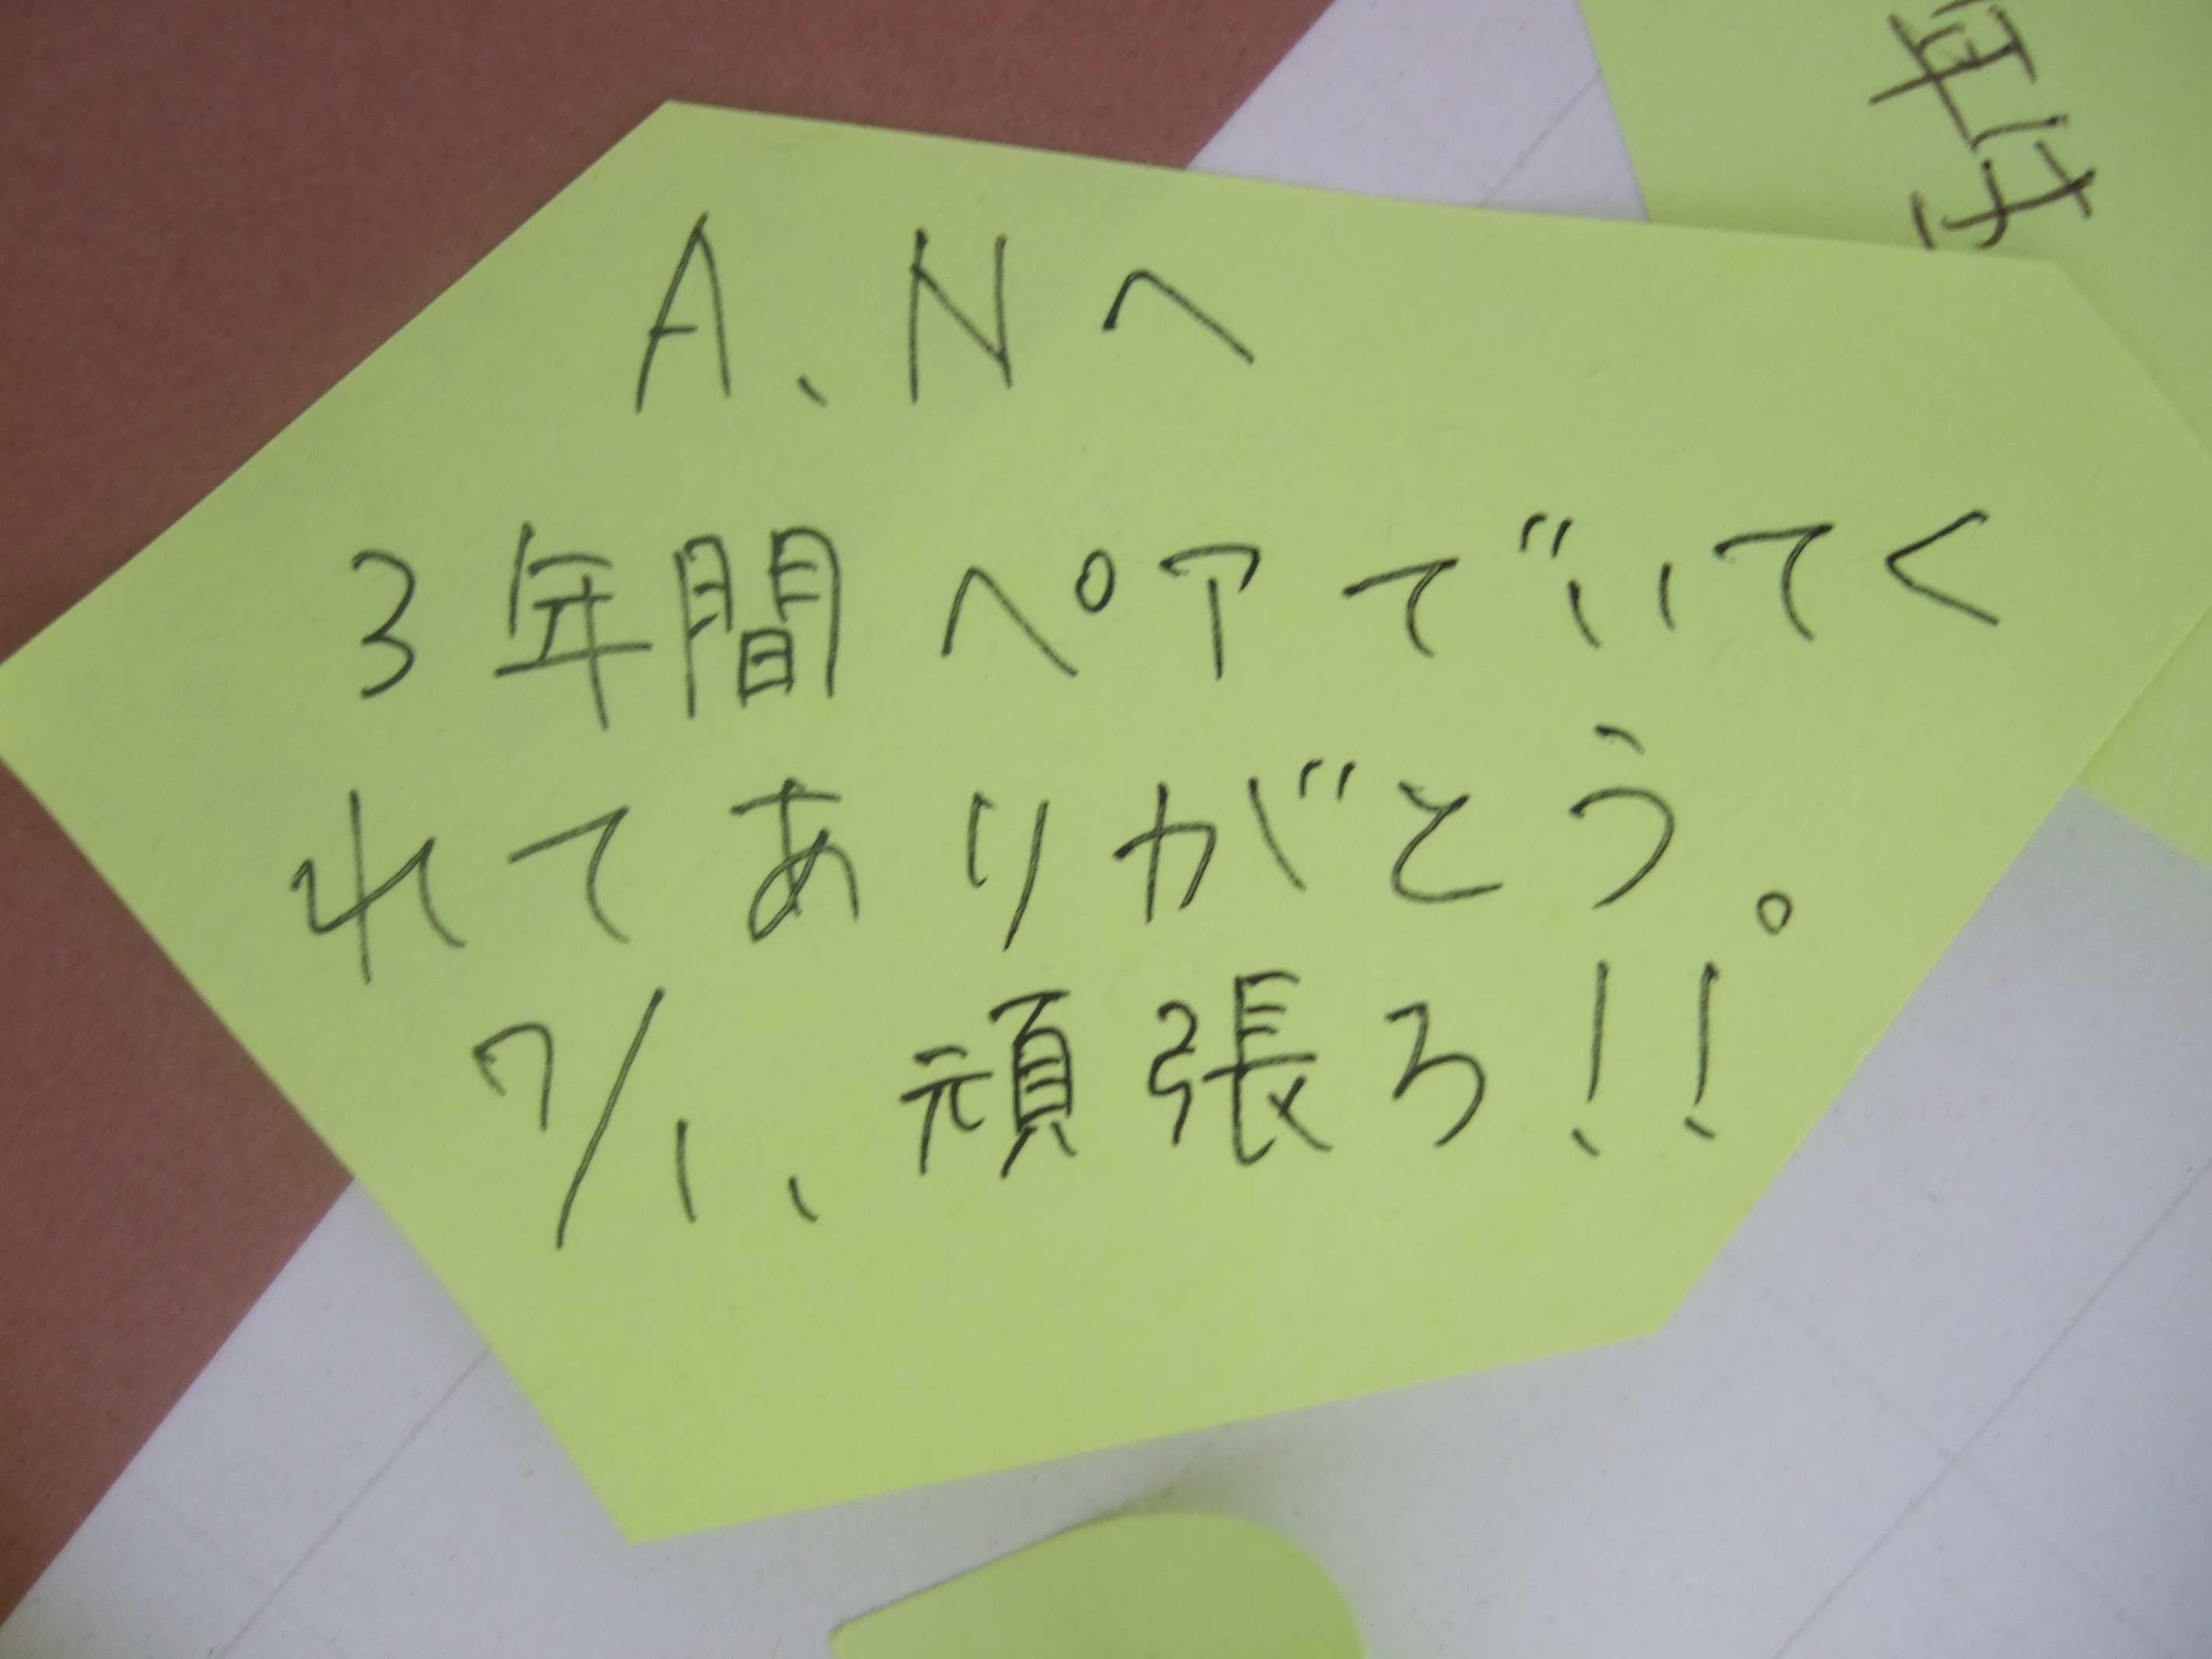 A、Nへ
3年間ペアでいてく
れてありがとう。
7/1、頑張ろ!!